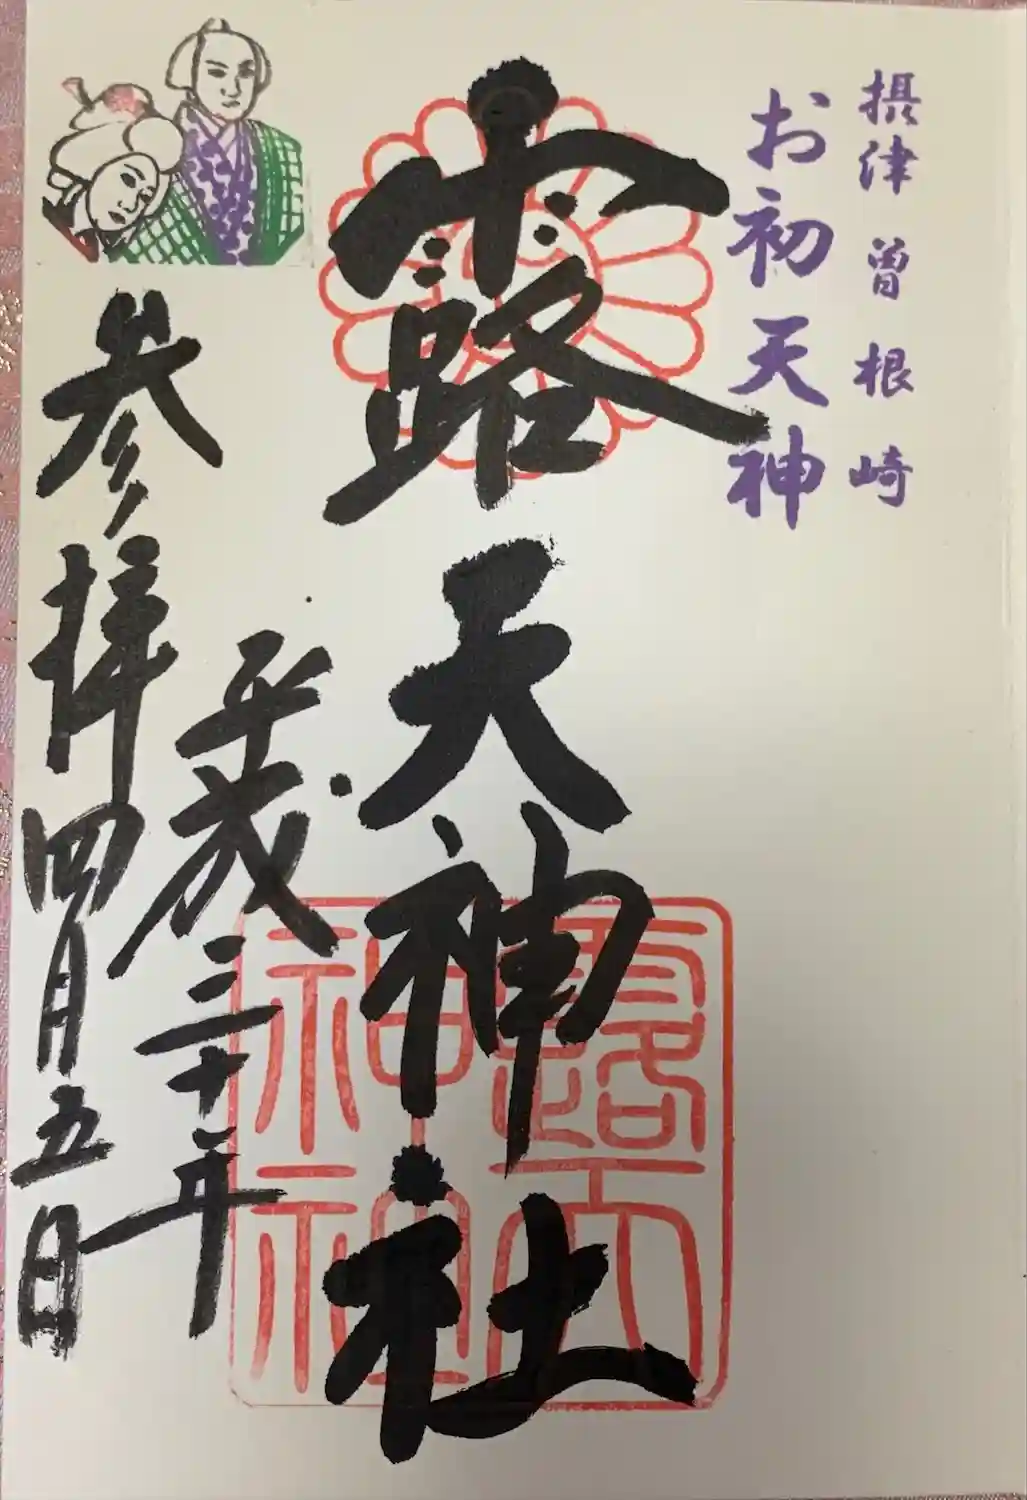 摂津 曽根崎
お初天神
露天神社
平成三十年
参拝四月五日
露天
神社